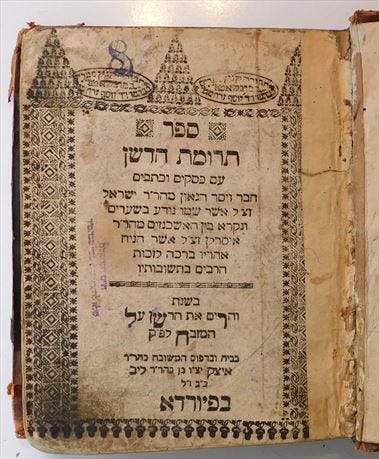 ספר
תרומת הדשן
עם פסקים וכתבים
חבר ויסד הגאון מהר״ר ישראל
זצ״ל אשר שמו נודע בשערים
ונקרא בין האשכנזים מהר״ר
איסרלן זצ״ל אשר הניח
אחריו ברכה לזכות
הרבים בתשובותיו
בשנת
והרים את הדשן על
המזבח לפ״ק
בבית ובדפוס המשובח כהר״ר
איצק יצ״ו בן כהר״ר ליב
ז״ל
בפיורדא